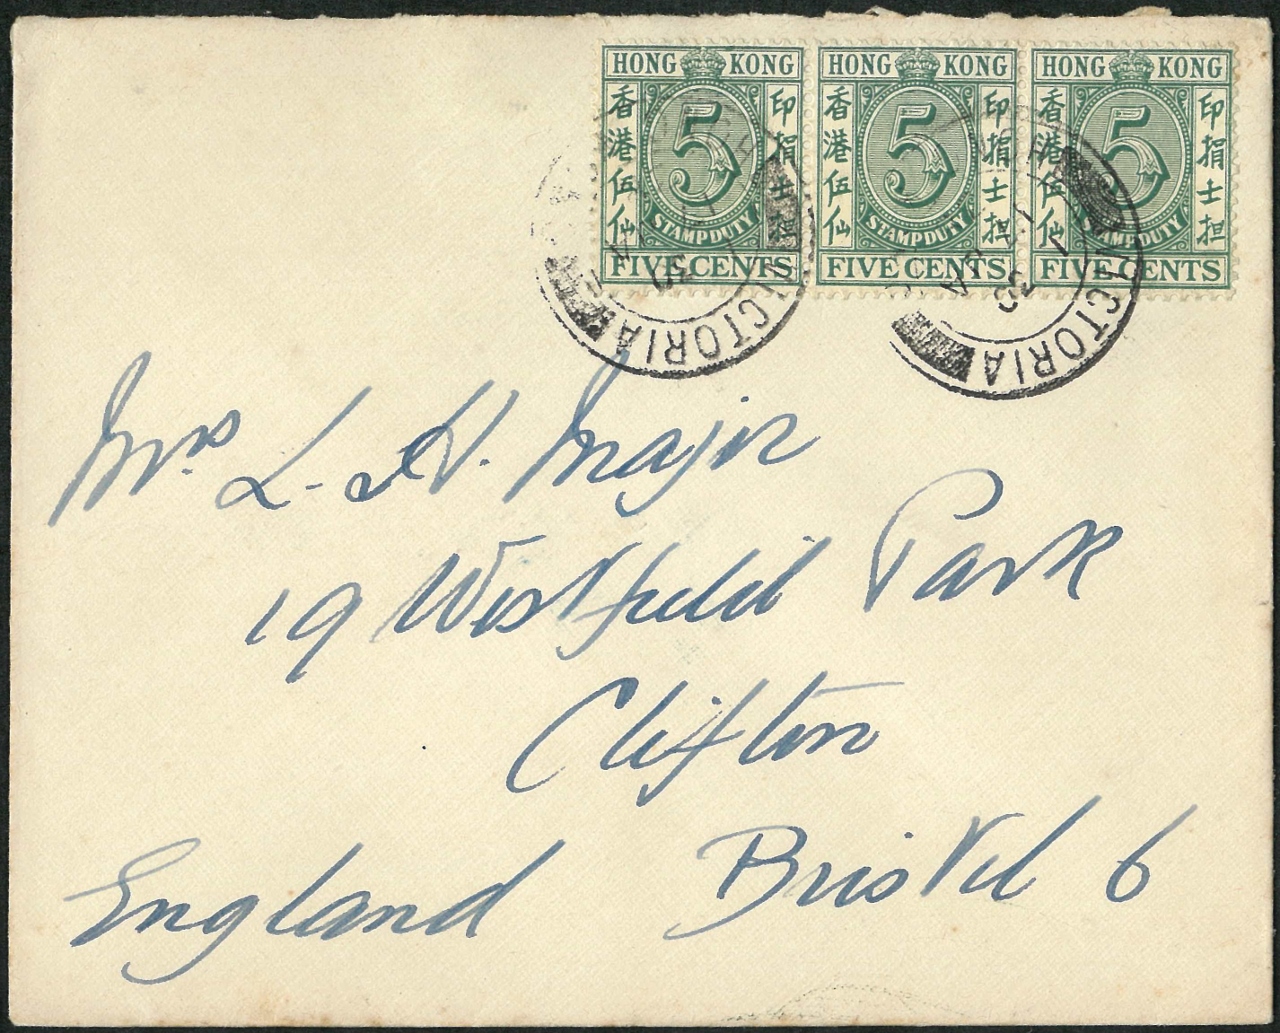 HONG KONG HONG KONG HONG KONG
5 5 5
香港伍仙 印捐士担 香港伍仙 印捐士担 香港伍仙 印捐士担
STAMP DUTY STAMP DUTY STAMP DUTY
FIVE CENTS FIVE CENTS FIVE CENTS
VICTORIA VICTORIA
Mrs L. H. Major
19 Westfield Park
Clifton
Bristol 6
England